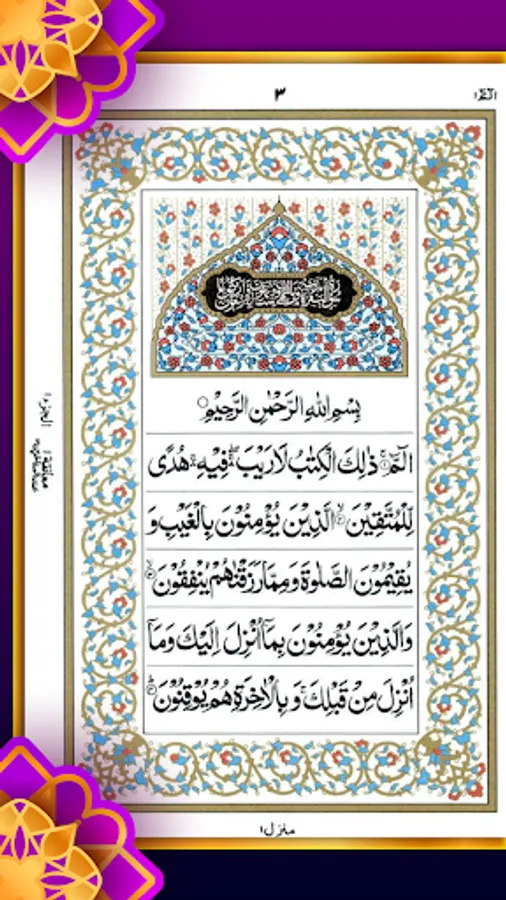 الٓمّٓ ١
٣
بِسْمِ اللّٰهِ الرَّحْمٰنِ الرَّحِیْمِ
الٓمّٓ ۚ۱ ذٰلِكَ الْكِتٰبُ لَا رَیْبَ ۛۖ فِیْهِ ۛۚ هُدًی
لِّلْمُتَّقِیْنَ ۙ۲ الَّذِیْنَ یُؤْمِنُوْنَ بِالْغَیْبِ وَ
یُقِیْمُوْنَ الصَّلٰوةَ وَ مِمَّا رَزَقْنٰهُمْ یُنْفِقُوْنَ ۙ۳
وَ الَّذِیْنَ یُؤْمِنُوْنَ بِمَاۤ اُنْزِلَ اِلَیْكَ وَ مَاۤ
اُنْزِلَ مِنْ قَبْلِكَ ۚ وَ بِالْاٰخِرَةِ هُمْ یُوْقِنُوْنَ ؕ۴
الجزء ١
معانقة ١
منزل ١